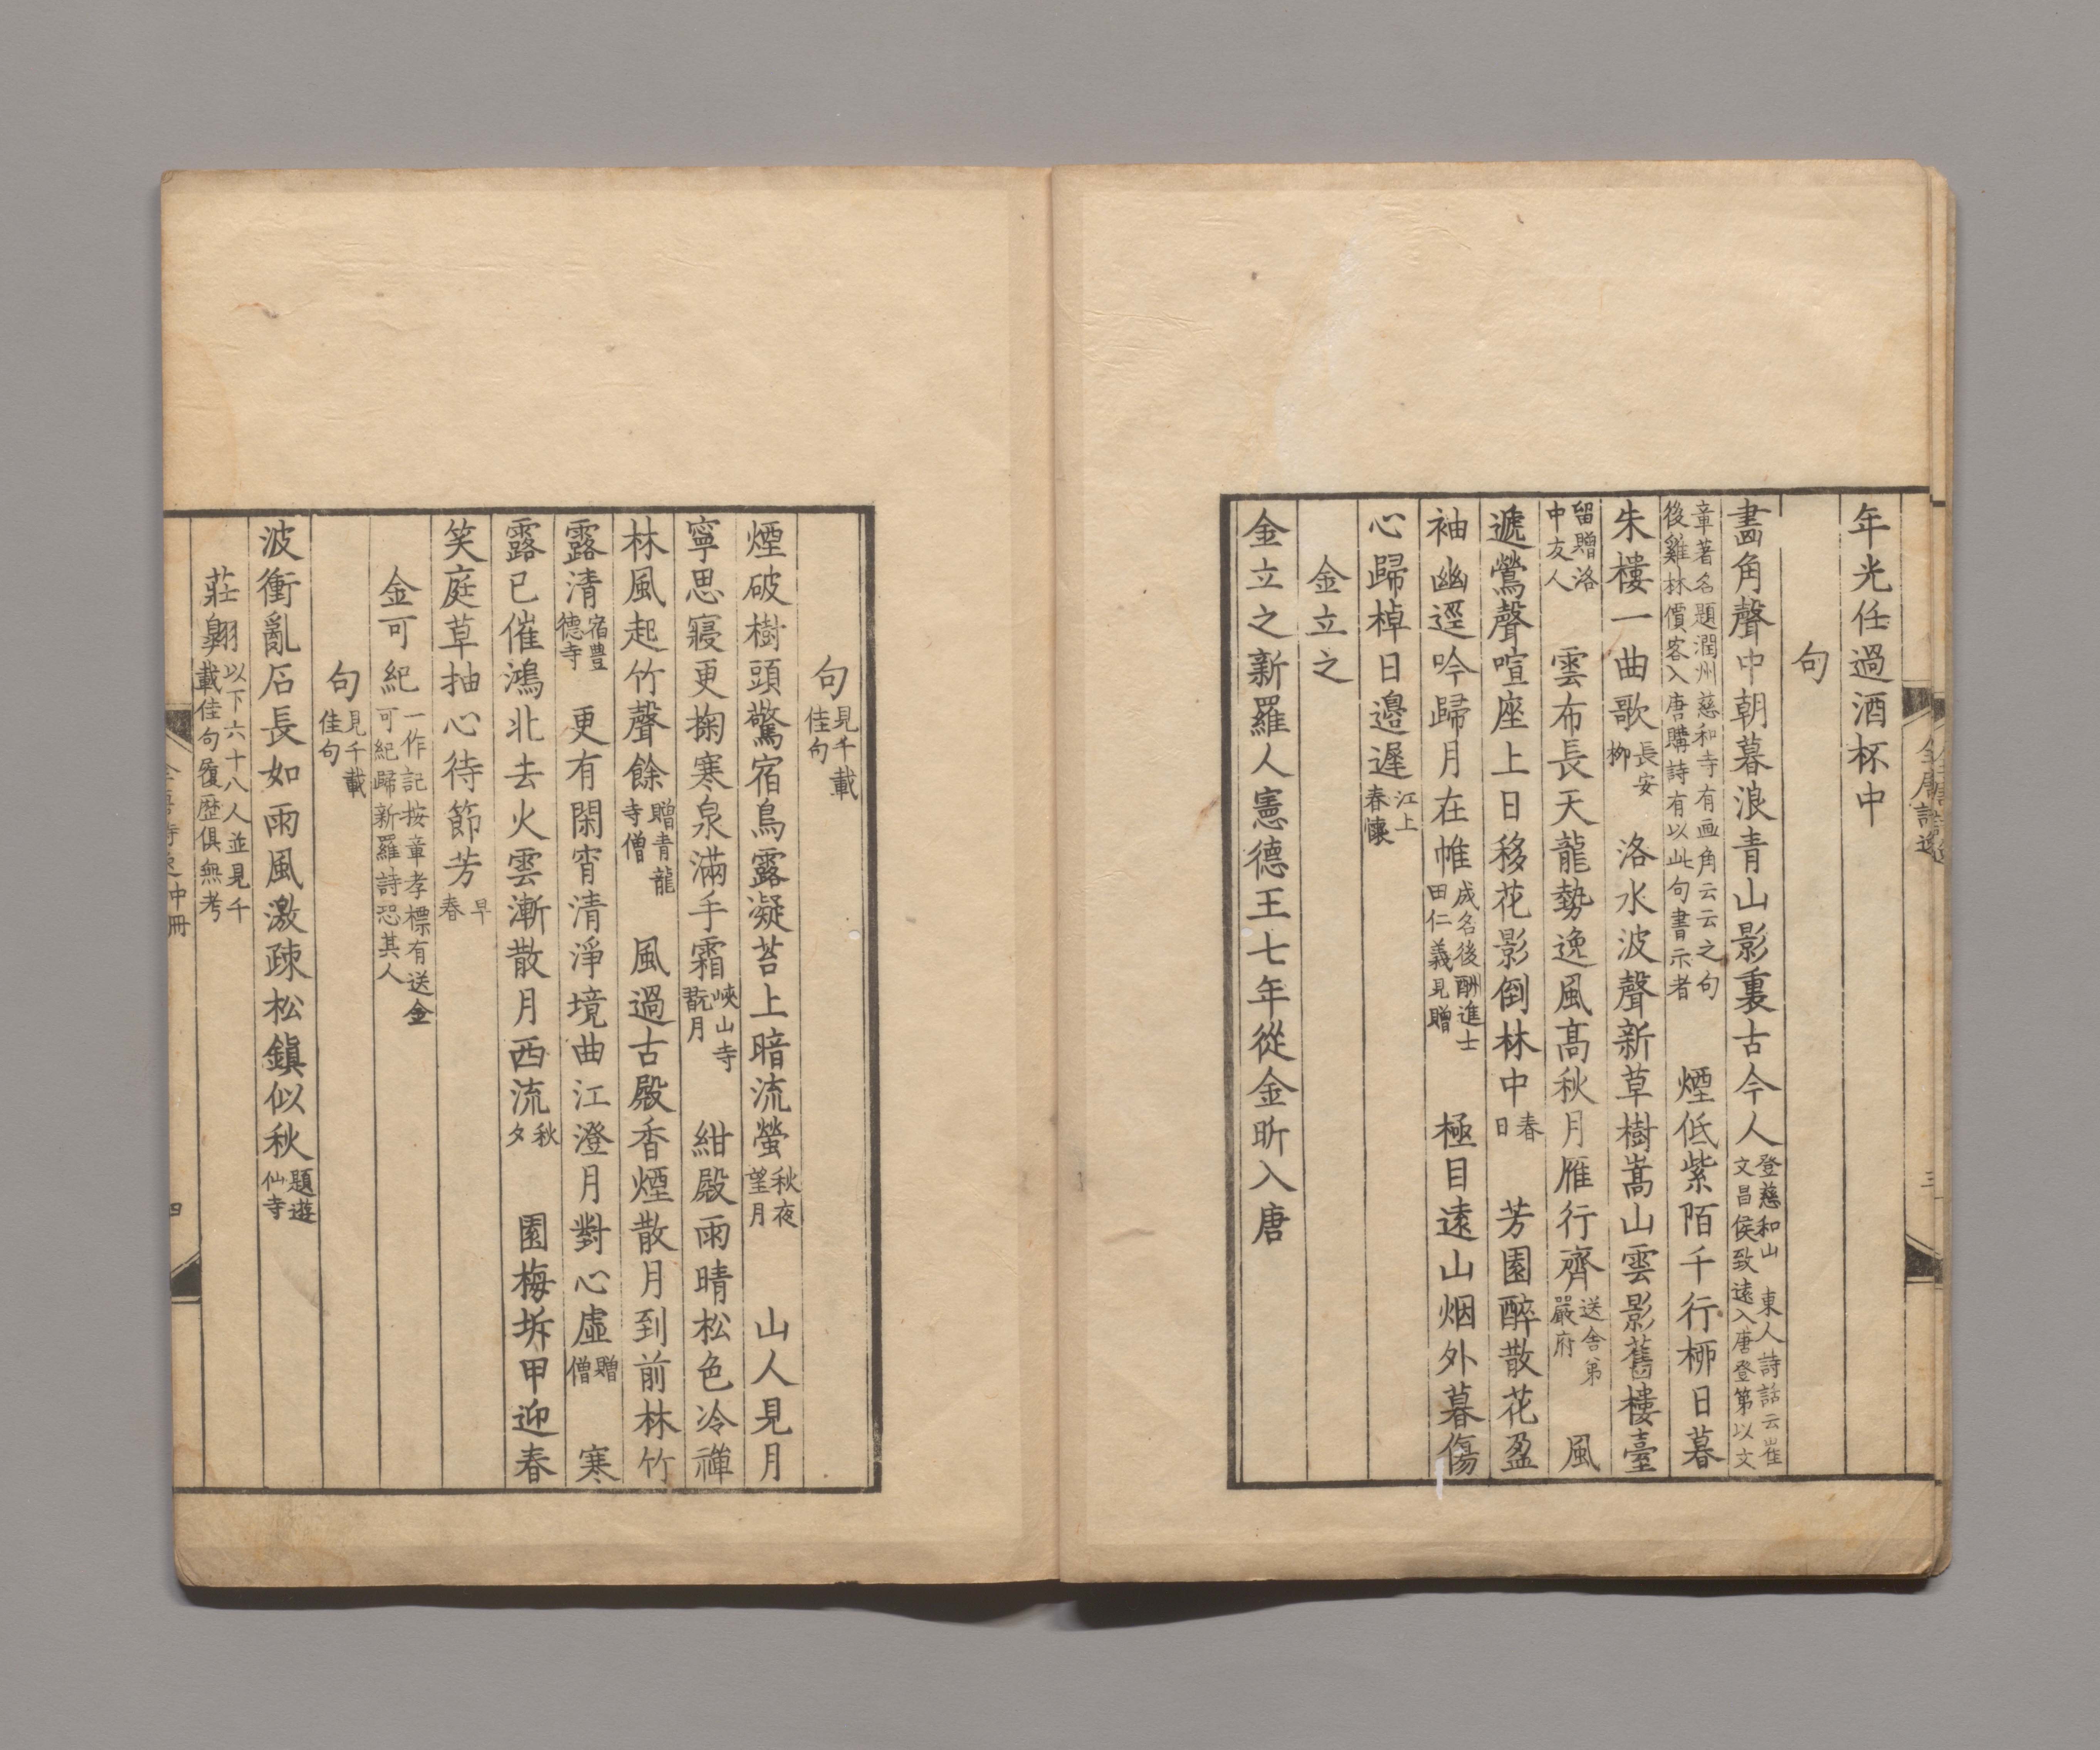 年光任過酒杯中
句
畵角聲中朝暮浪青山影裏古今人登慈和山　東人詩話云崔文昌侯致遠入唐登第以文
章著名題潤州慈和寺有画角云云之句後雞林價客入唐購詩有以此句書示者　煙低紫陌千行栁日暮
朱樓一曲歌長安栁　洛水波聲新草樹嵩山雲影舊樓臺
留贈洛中友人　雲布長天龍勢逸風髙秋月雁行齊送舍第嚴府　風
遞鶯聲喧座上日移花影倒林中春日　芳園醉散花盈
袖幽逕吟歸月在帷成名後酬進士田仁義見贈　極目遠山烟外暮傷
心歸棹日邊遲江上春懷
金立之
金立之新羅人憲德王七年從金昕入唐
句見千載佳句
煙破樹頭驚宿鳥露凝苔上暗流螢秋夜望月　山人見月
寧思寢更掬寒泉滿手霜峽山寺翫月　紺殿雨晴松色冷禪
林風起竹聲餘贈青龍寺僧　風過古殿香煙散月到前林竹
露清宿豊德寺　更有閑宵清淨境曲江澄月對心虛贈僧　寒
露已催鴻北去火雲漸散月西流秋夕　園梅坼甲迎春
笑庭草抽心待節芳早春
金可紀一作記按章孝標有送金可紀歸新羅詩恐其人
句見千載佳句
波衝亂石長如雨風激疎松鎮似秋題遊仙寺
莊翺以下六十八人並見千載佳句履歷俱無考